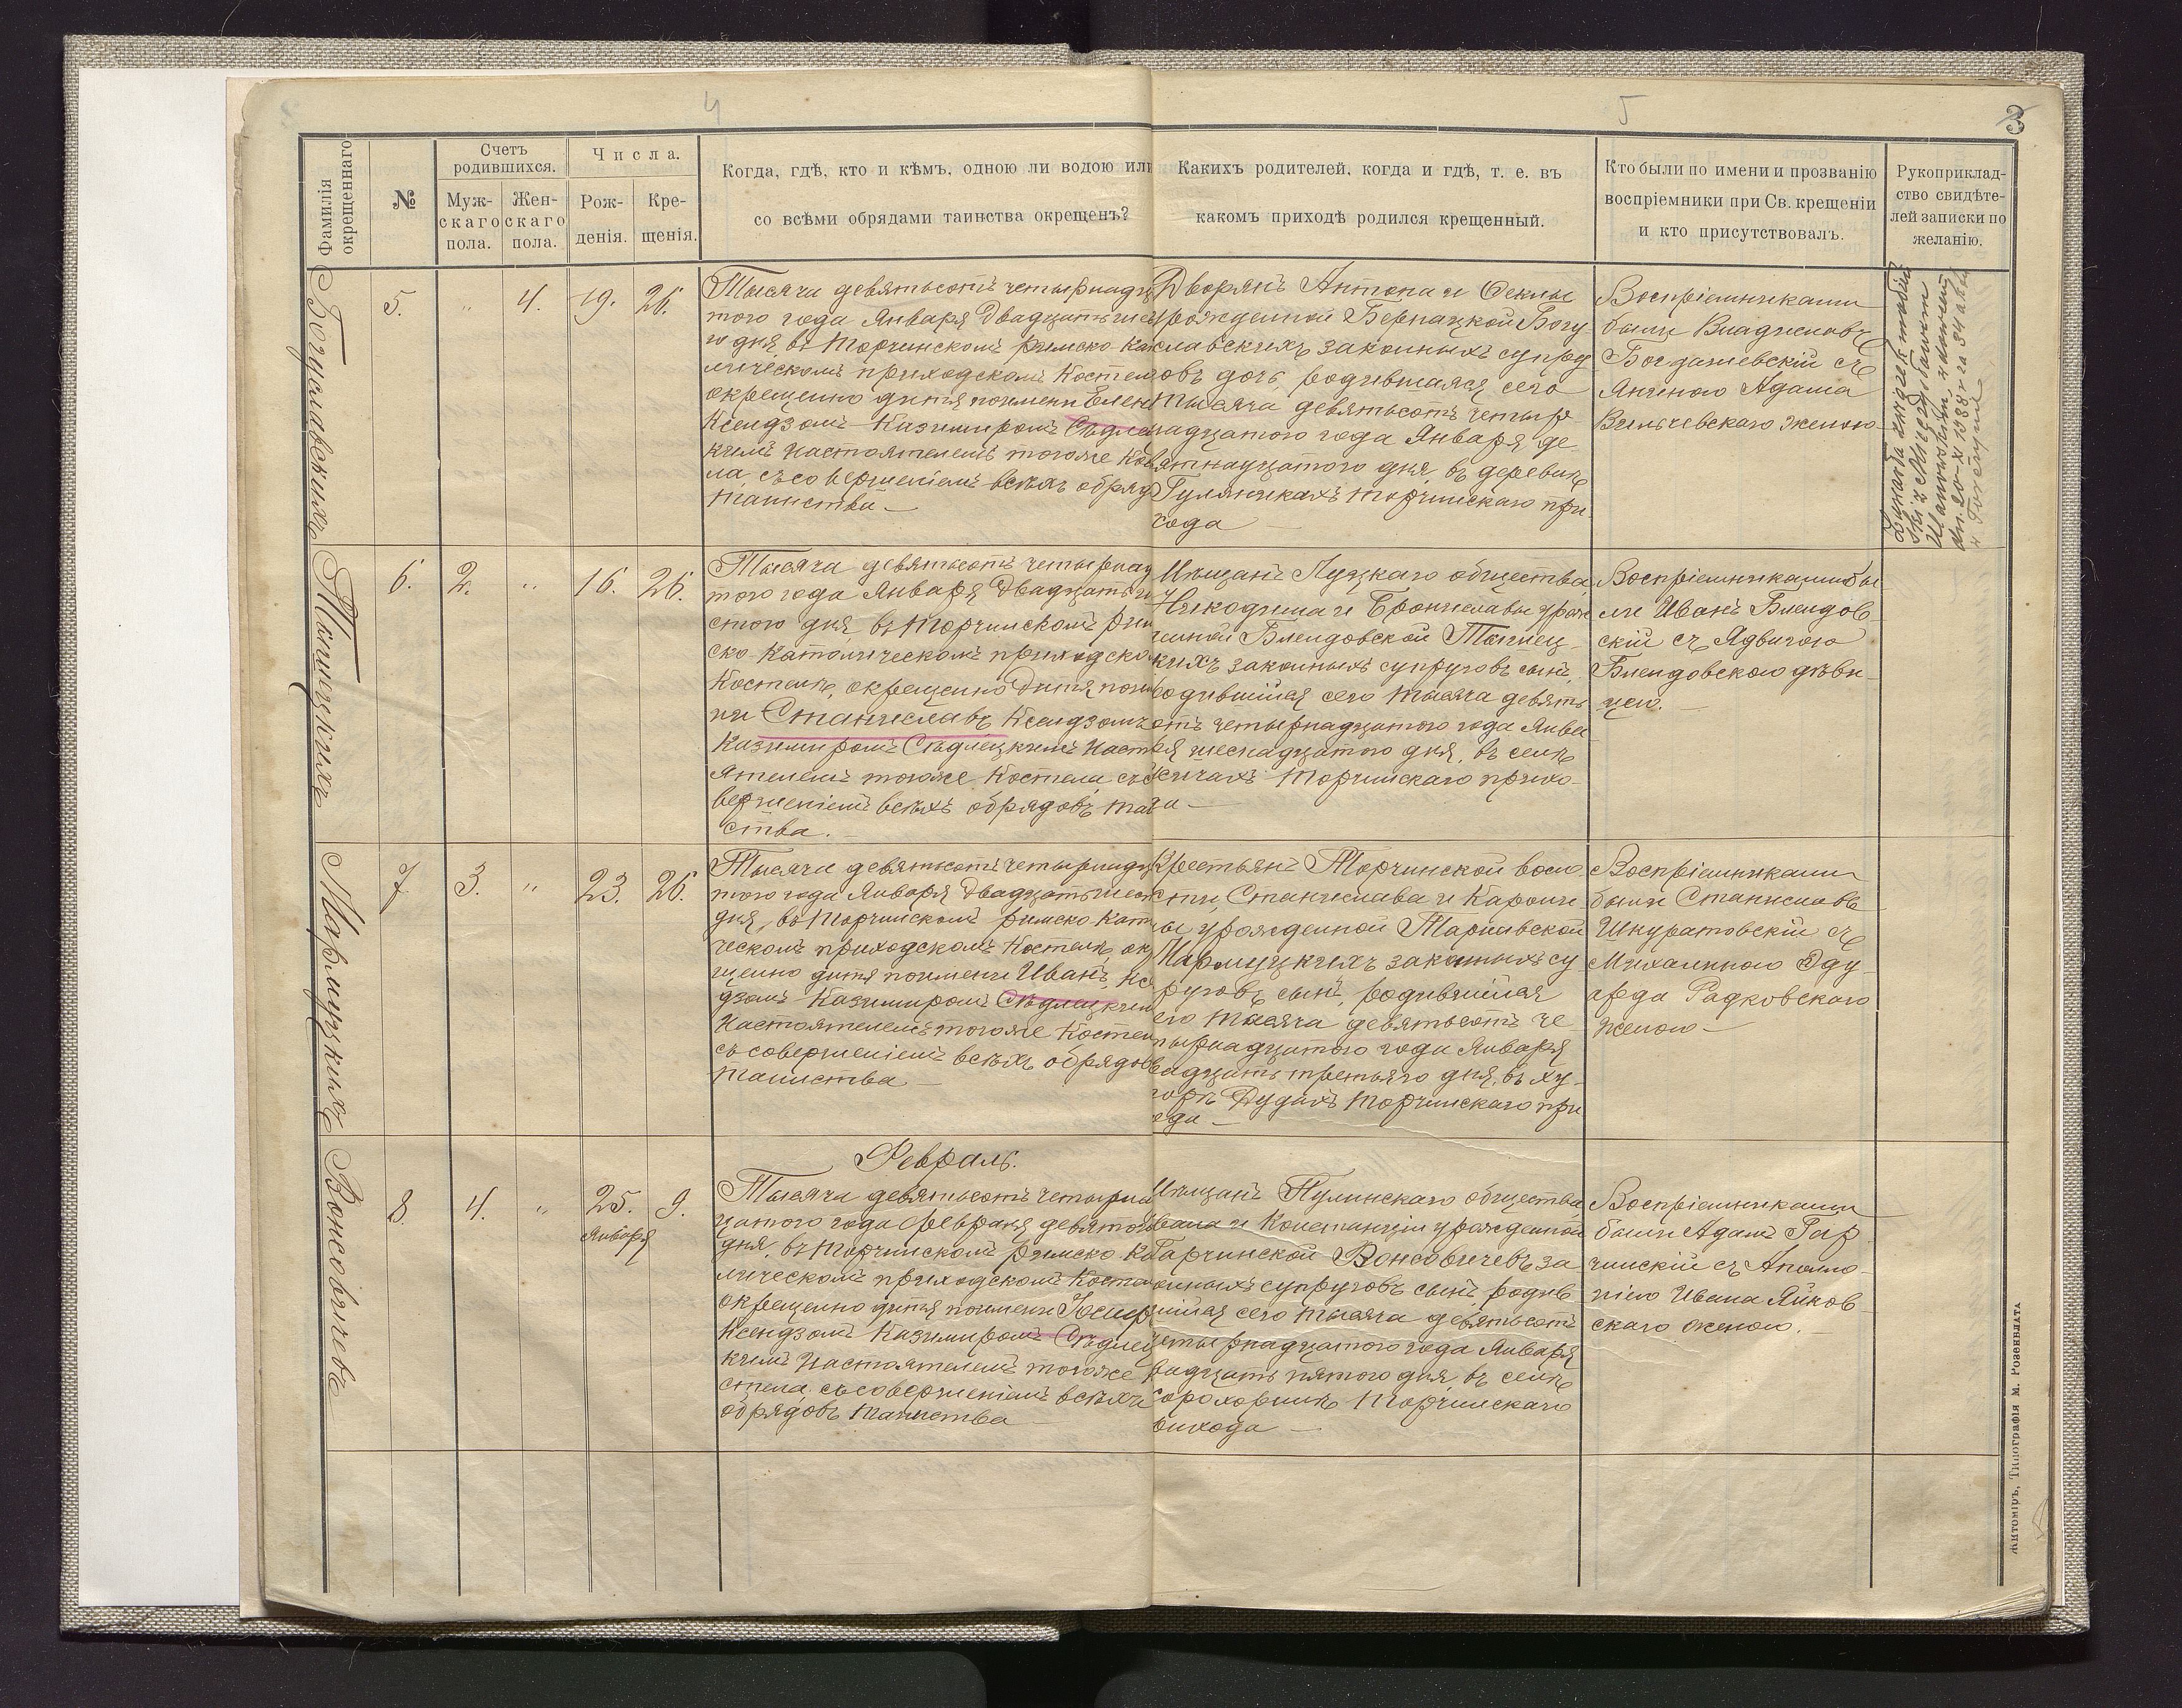 4
5
3
Фамилія окрещеннаго
№
Счетъ родившихся.
Муж-
скаго
пола.
Жен-
скаго
пола.
Числа.
Рож-
денія.
Кре-
щенія.
Когда, гдѣ, кто и кѣмъ, одною ли водою или
со всѣми обрядами таинства окрещенъ?
Какихъ родителей, когда и гдѣ, т. е. въ
какомъ приходѣ родился крещенный.
Кто были по имени и прозванію
воспріемники при Св. крещеніи
и кто присутствовалъ.
Рукоприклад-
ство свидѣте-
лей записки по
желанію.
Богуславскихъ
5. " 4. 19. 26.
Тысяча девятьсотъ четырнадц
того года Января двадцать шес
го дня, въ Торчинскомъ римско ка
лическомъ приходскомъ Костел
окрещено дитя по имени Елен
Ксендзомъ Казимиромъ Сѣдле
кимъ Настоятелемъ тогоже Кос
ла, съ совершеніемъ всѣхъ обряд
таинства.
Дворянъ Антона и Феклы
урожденной Бернацкой Богу
славскихъ законныхъ супру
овъ дочь, родившаяся сего
тысяча девятьсотъ четыр
надцатого года Января де
ятнадцатого дня, въ деревнѣ
Гуляникахъ Торчинскаго при
хода
Воспріемниками
были Владиславъ
Богдашевскій съ
Анною Адама
Вильчевскаго женою
6. 2. " 16. 26.
Тысяча девятьсотъ четырнад
того года Января двадцать ш
стого дня, въ Торчинскомъ рим
ско-католическомъ приходско
Костелѣ, окрещено дитя по им
ни Станиславъ Ксендзомъ
Казимиромъ Сѣдлецкимъ Наст
ятелемъ тогоже Костела, съ с
вершеніемъ всѣхъ обрядовъ таи
ства.
Мѣщанъ Луцкаго общества,
Никодима и Брониславы урож
енной Блендовской
кихъ законныхъ супруговъ сынъ,
родившійся сего тысяча девять
отъ четырнадцатого года Янва
ря шеснадцатого дня, въ селѣ
Торчинскаго прихо
да
Воспріемниками бы
ли Иванъ Блендов
скій съ Ядвигою
Блендовскою дѣви
цею.
Мармуцкихъ
7. 3. " 23. 26.
Тысяча девятьсотъ четырнадц
того года Января двадцать шест
дня, въ Торчинскомъ римско като
ческомъ приходскомъ Костелѣ, ок
щено дитя по имени Иванъ, Кс
дзомъ Казимиромъ Сѣдлецким
Настоятелемъ тогоже Костел
съ совершеніемъ всѣхъ обрядов
таинства
Крестьянъ Торчинской воло
сти, Станислава и Кароли
ы урожденной Тарнавской
Мармуцкихъ законныхъ су
руговъ сынъ, родившійся
его тысяча девятьсотъ че
тырнадцатого года Января
вадцать третьяго дня, въ ху
торѣ Дудахъ Торчинскаго при
ода
Воспріемниками
были Станиславъ
Шкуратовскій съ
Михалиною Эду
арда Радковскаго
женою
Февраль.
Вонсовичевъ
8. 4. " 25. 9.
Января
Тысяча девятьсотъ четырна
цатого года февраля девятого
дня, въ Торчинскомъ римско ка
лическомъ приходскомъ Косте
окрещено дитя по имени Іосиф
Ксендзомъ Казимиромъ Сѣдлец
кимъ Настоятелемъ тогоже
стела, съ совершеніемъ всѣхъ
обрядовъ таинства
Мѣщанъ Пулинскаго общества
вана и Констанціи урожденной
Гарчинской Вонсовичевъ за
онныхъ супруговъ сынъ, родив
шійся сего тысяча девятьсотъ
четырнадцатого года Января
вадцать пятого дня, въ селѣ
Торчинскаго
рихода
Воспріемниками
были Адамъ Гар
чинскій съ Аполло
ніею Ивана Яйков
скаго женою.
Житоміръ, Типографія М. Розенблата